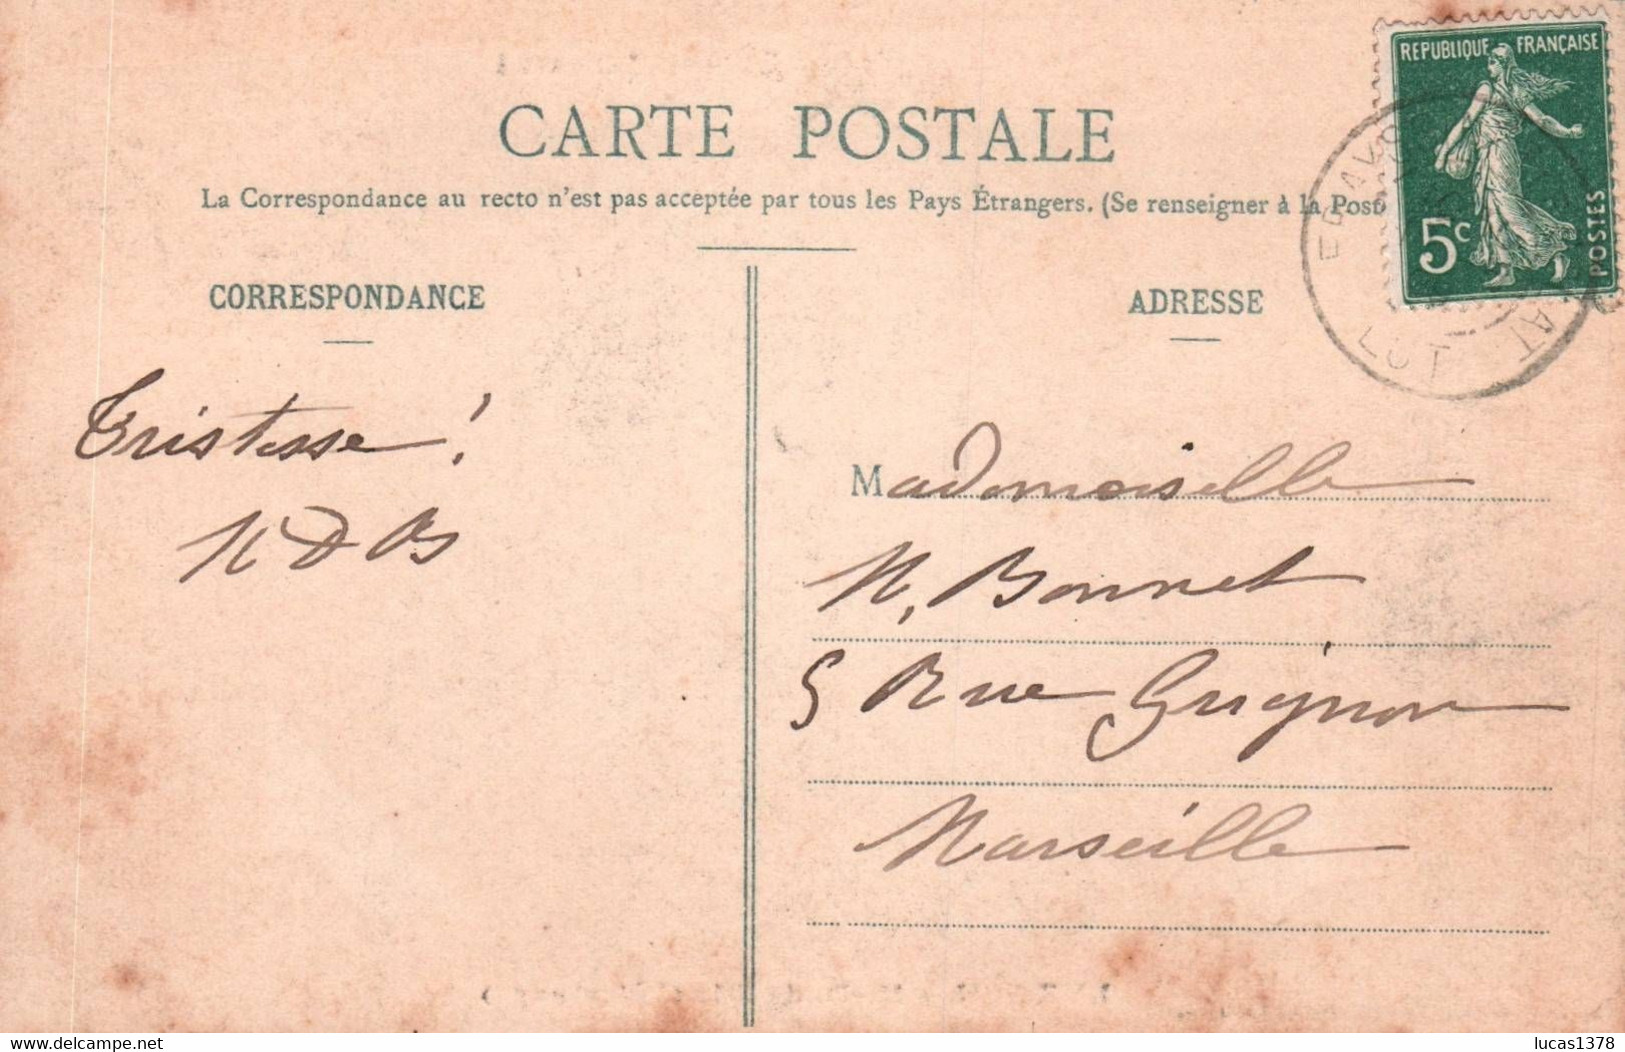 REPUBLIQUE FRANÇAISE
5c
POSTES
CARTE POSTALE
La Correspondance au recto n'est pas acceptée par tous les Pays Étrangers. (Se renseigner à la Poste
CORRESPONDANCE
ADRESSE
Tristesse!
Mademoiselle
N. Bonnet
5 Rue Grignon
Marseille
delcampe.net
lucas1378